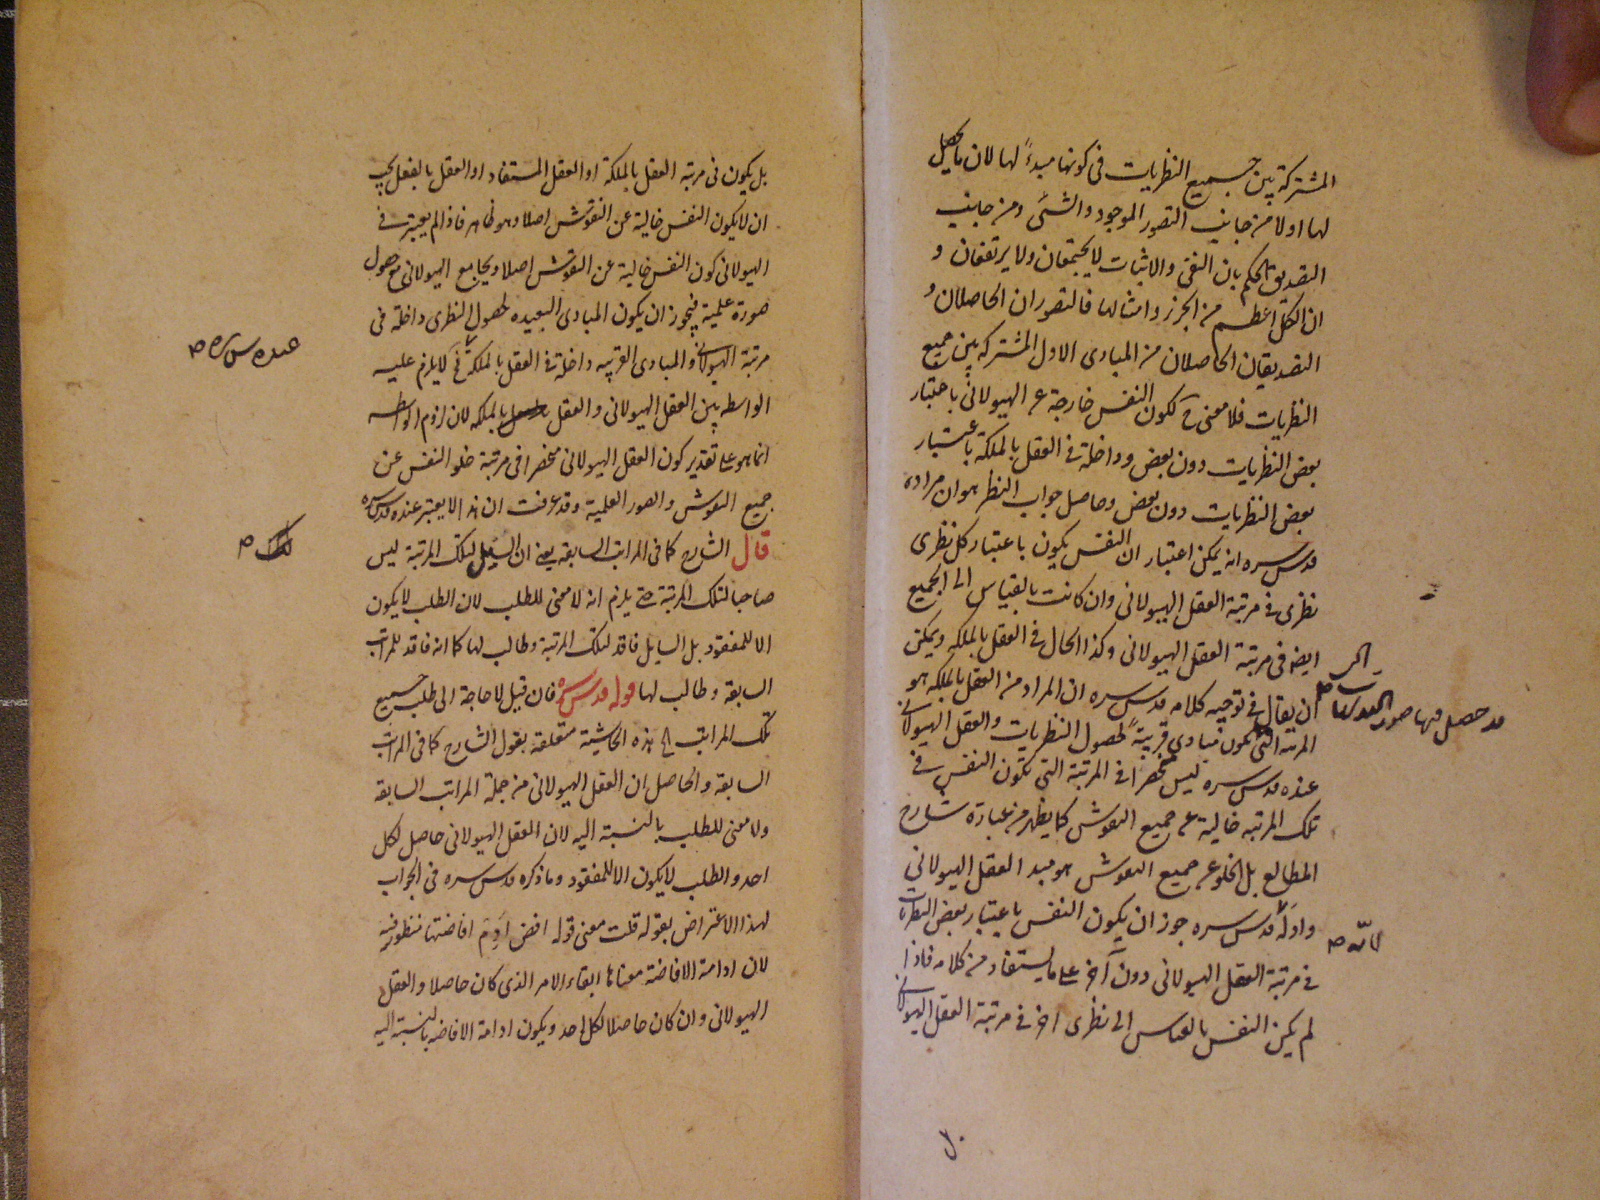 المشتركة بين جميع النظريات فى كونها مبدءً لها لان ما يحصل
لها اولا من جانب التصور الموجود والشئ ومن جانب
التصديق الحكم بان النفى والاثبات لا يجتمعان ولا يرتفعان و
ان الكل اعظم من الجزء وامثالها فالتصوران الحاصلان و
التصديقان الحاصلان من المبادى الاول المشتركة بين جميع
النظريات فلا معنى ح لكون النفس خارجة عن الهيولانى باعتبار
بعض النظريات دون بعض وداخلة فى العقل بالملكة باعتبار
بعض النظريات دون بعض وحاصل جواب النظر هو ان مراده
قدس سره انه يمكن اعتبار ان النفس يكون باعتبار كل نظرى
نظرى فى مرتبة العقل الهيولانى وان كانت بالقياس الى الجميع
ايضا فى مرتبة العقل الهيولانى وكذا الحال فى العقل بالملكه ويمكن
ان يقال فى توجيه كلامه قدس سره ان المراد من العقل بالملكه هو
المرتبة التى تكون مبادى قريبةً لحصول النظريات والعقل الهيولانى
عنده قدس سره ليس منحصرا فى المرتبة التى تكون النفس فى
تلك المرتبه خالية عن جميع النقوش كما يظهر من عبارة شارح
المطالع بل الخلو عن جميع النقوش هو مبدء العقل الهيولانى
واوله قدس سره جوز ان يكون النفس باعتبار بعض النظريات
فى مرتبة العقل الهيولانى دون آخر على ما يستفاد من كلامه فاذا
لم يكن النفس بالقياس الى نظرى اخر فى مرتبة العقل الهيولانى
قد حصل فيها صور
لانه صح
بل يكون فى مرتبة العقل بالملكة او العقل المستفاد او العقل بالفعل يجب
ان لا يكون النفس خالية عن النقوش اصلا وهو ظاهر فاذا لم يعتبر فى
الهيولانى كون النفس خالية عن النقوش اصلا ويجامع الهيولانى مع حصول
صورة علمية فيجوز ان يكون المبادى البعيده لحصول النظرى داخلة فى
مرتبة الهيولانى والمبادى القريبه داخلة فى العقل بالملكة فح لا يلزم عليه
الواسطه بين العقل الهيولانى والعقل بالملكه لان لزوم الواسطه
انما هو على تقدير كون العقل الهيولانى منحصرا فى مرتبة خلو النفس عن
جميع النقوش والصور العلمية وقد عرفت ان هذا لا يعتبر عنده قدس سره
قال الشارح كما فى المراتب السابقه يعنى ان السايل لتلك المرتبة ليس
صاحبا لتلك المرتبة حتى يلزم انه لا معنى للطلب لان الطلب لا يكون
الا للمفقود بل السايل فاقد لتلك المرتبة وطالب لها كما انه فاقد للمراتب
السابقة وطالب لها قوله قدس سره فان قيل لا حاجة الى طلب جميع
تلك المراتب الخ هذه الحاشية متعلقة بقول الشارح كما فى المراتب
السابقه والحاصل ان العقل الهيولانى من جملة المراتب السابقه
ولا معنى للطلب بالنسبته اليه لان العقل الهيولانى حاصل لكل
احد والطلب لا يكون الا للمفقود وما ذكره قدس سره فى الجواب
لهذا الاعتراض بقوله قلت معنى قوله افض ادم افاضتها منظور فيه
لان ادامة الافاضة معناها ابقاء الامر الذى كان حاصلا والعقل
الهيولانى وان كان حاصلا لكل احد ويكون ادامة الافاضه بالنسبته اليه
عنده س سره صح